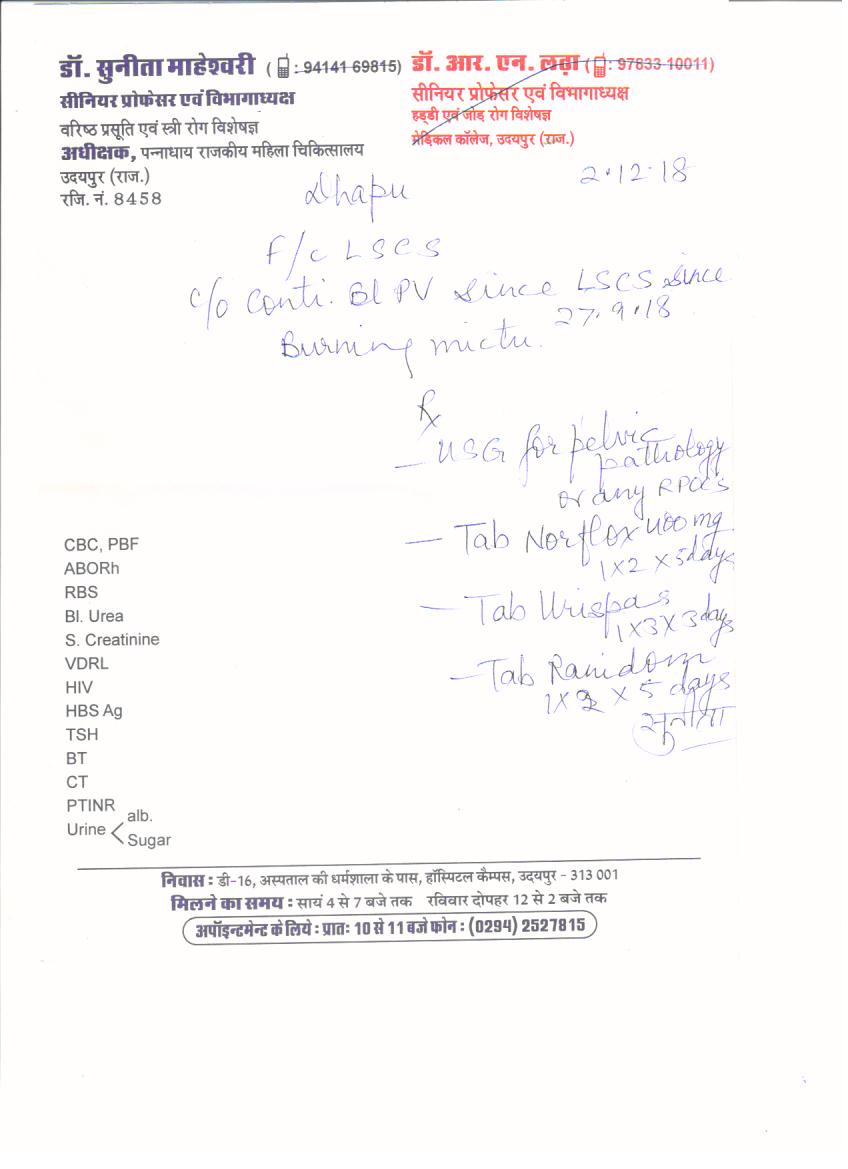 डॉ. सुनीता माहेश्वरी ( : 94141 69815)
सीनियर प्रोफेसर एवं विभागाध्यक्ष
वरिष्ठ प्रसूति एवं स्त्री रोग विशेषज्ञ
अधीक्षक, पन्नाधाय राजकीय महिला चिकित्सालय
उदयपुर (राज.)
रजि. नं. 8458
डॉ. आर. एन. लढ़ा ( : 97833 10011)
सीनियर प्रोफेसर एवं विभागाध्यक्ष
हड्डी एवं जोड़ रोग विशेषज्ञ
मेडिकल कॉलेज, उदयपुर (राज.)
2.12.18
Dhapu
F/c LSCS
c/o Conti. Bl PV since LSCS since
27.9.18
Burning mictu.
Rx
- USG for pelvic
pathology
or any RPOC's
- Tab Norflox 400 mg
1 x 2 x 5 days
- Tab Urispas
1 x 3 x 3 days
- Tab Ranidom
1 x 2 x 5 days
सुनीता
CBC, PBF
ABORh
RBS
Bl. Urea
S. Creatinine
VDRL
HIV
HBS Ag
TSH
BT
CT
PTINR
Urine < alb.
Sugar
निवास : डी-16, अस्पताल की धर्मशाला के पास, हॉस्पिटल कैम्पस, उदयपुर - 313 001
मिलने का समय : सायं 4 से 7 बजे तक रविवार दोपहर 12 से 2 बजे तक
अपॉइन्टमेन्ट के लिये : प्रातः 10 से 11 बजे फोन : (0294) 2527815